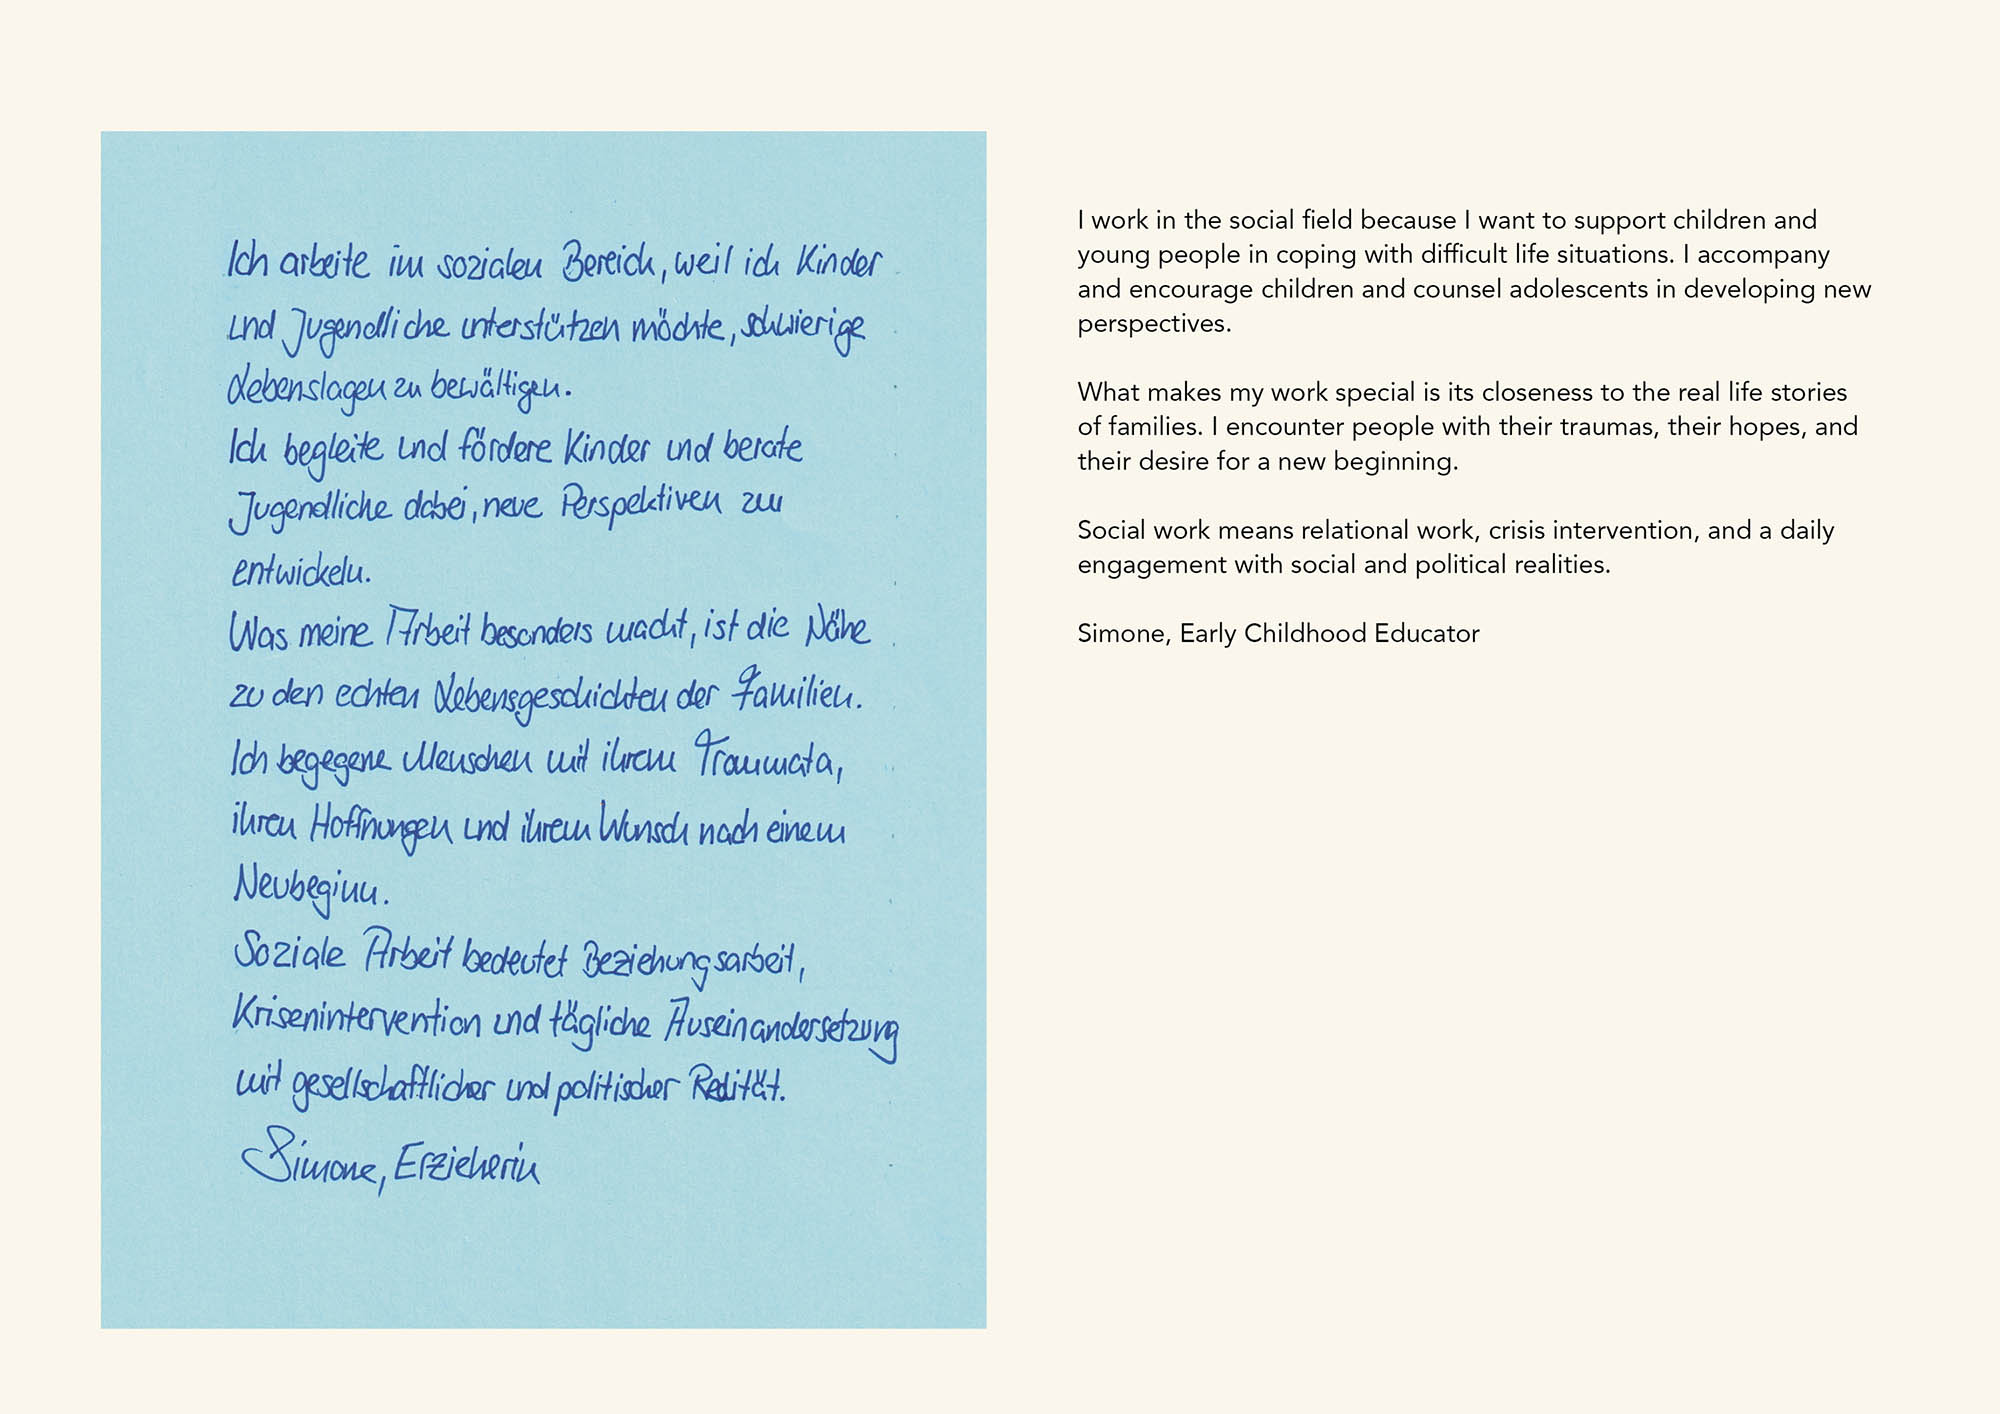 Ich arbeite im sozialen Bereich, weil ich Kinder
und Jugendliche unterstützen möchte, schwierige
Lebenslagen zu bewältigen.
Ich begleite und fördere Kinder und berate
Jugendliche dabei, neue Perspektiven zu
entwickeln.
Was meine Arbeit besonders macht, ist die Nähe
zu den echten Lebensgeschichten der Familien.
Ich begegne Menschen mit ihrem Traumata,
ihren Hoffnungen und ihrem Wunsch nach einem
Neubeginn.
Soziale Arbeit bedeutet Beziehungsarbeit,
Krisenintervention und tägliche Auseinandersetzung
mit gesellschaftlicher und politischer Realität.
Simone, Erzieherin
I work in the social field because I want to support children and
young people in coping with difficult life situations. I accompany
and encourage children and counsel adolescents in developing new
perspectives.
What makes my work special is its closeness to the real life stories
of families. I encounter people with their traumas, their hopes, and
their desire for a new beginning.
Social work means relational work, crisis intervention, and a daily
engagement with social and political realities.
Simone, Early Childhood Educator